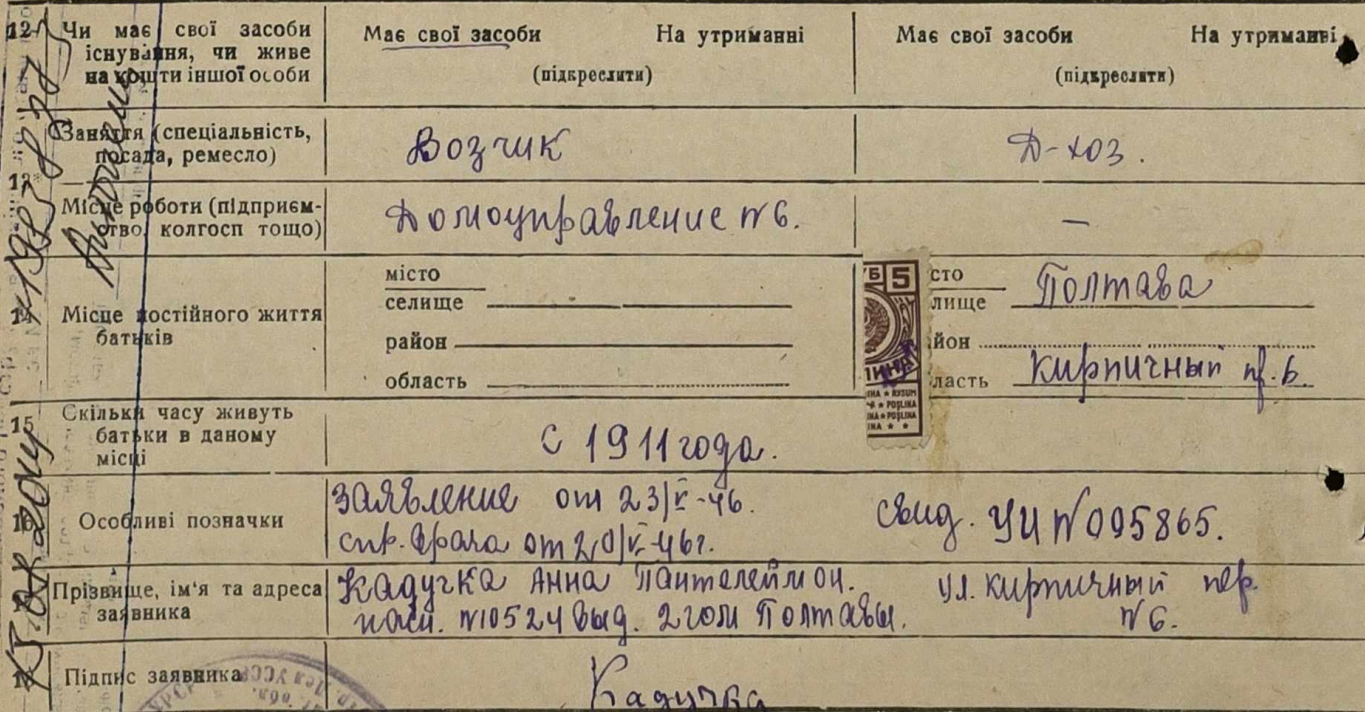 12 Чи має свої засоби існування, чи живе на кошти іншої особи
Має свої засоби На утриманні
(підкреслити)
Має свої засоби На утриманні
(підкреслити)
13 Заняття (спеціальність, посада, ремесло)
Возчик
Д-хоз.
Місце роботи (підприєм-
ство, колгосп тощо)
Домоуправление №6.
—
14 Місце постійного життя батьків
місто
селище
район
область
УБ 5
сто
лище
Полтава
йон
ласть
Кирпичный пр. 6
15 Скільки часу живуть батьки в даному місці
С 1911 года.
16 Особливі позначки
Заявление от 23/V-46.
спр. врача от 20/V-46г.
свид. УИ №095865.
Прізвище, ім'я та адреса заявника
Кадучка Анна Пантелеймон.
пасп. №10524 выд. 2 гом Полтавы.
ул. Кирпичный пер.
№6.
Підпис заявника
Кадучка